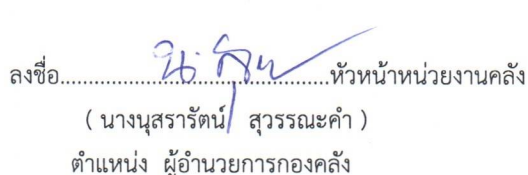 ลงชื่อ....................................................หัวหน้าหน่วยงานคลัง
( นางนุสรารัตน์ สุวรรณะคำ )
ตำแหน่ง ผู้อำนวยการกองคลัง